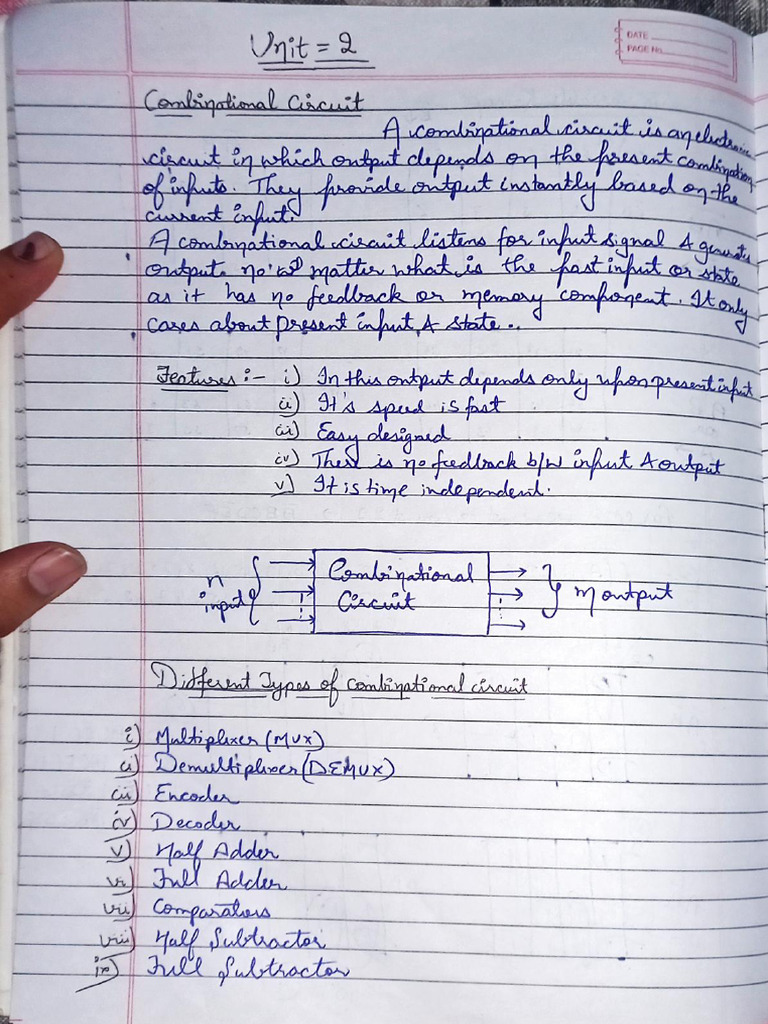 Unit = 2
DATE
PAGE No.
Combinational Circuit
A combinational circuit is an electronic
circuit in which output depends on the present combination
of inputs. They provide output instantly based on the
current input.
A combinational circuit listens for input signal & generate
output no matter what is the past input or state
as it has no feedback or memory component. It only
cares about present input & state..
Features :- i) In this output depends only upon present input
ii) It's speed is fast
iii) Easy designed
iv) There is no feedback b/w input & output
v) It is time independent.
n
input
Combinational
Circuit
m output
Different Types of combinational circuit
i) Multiplexer (MUX)
ii) Demultiplexer (DEMUX)
iii) Encoder
iv) Decoder
v) Half Adder
vi) Full Adder
vii) Comparators
viii) Half Subtractor
ix) Full Subtractor